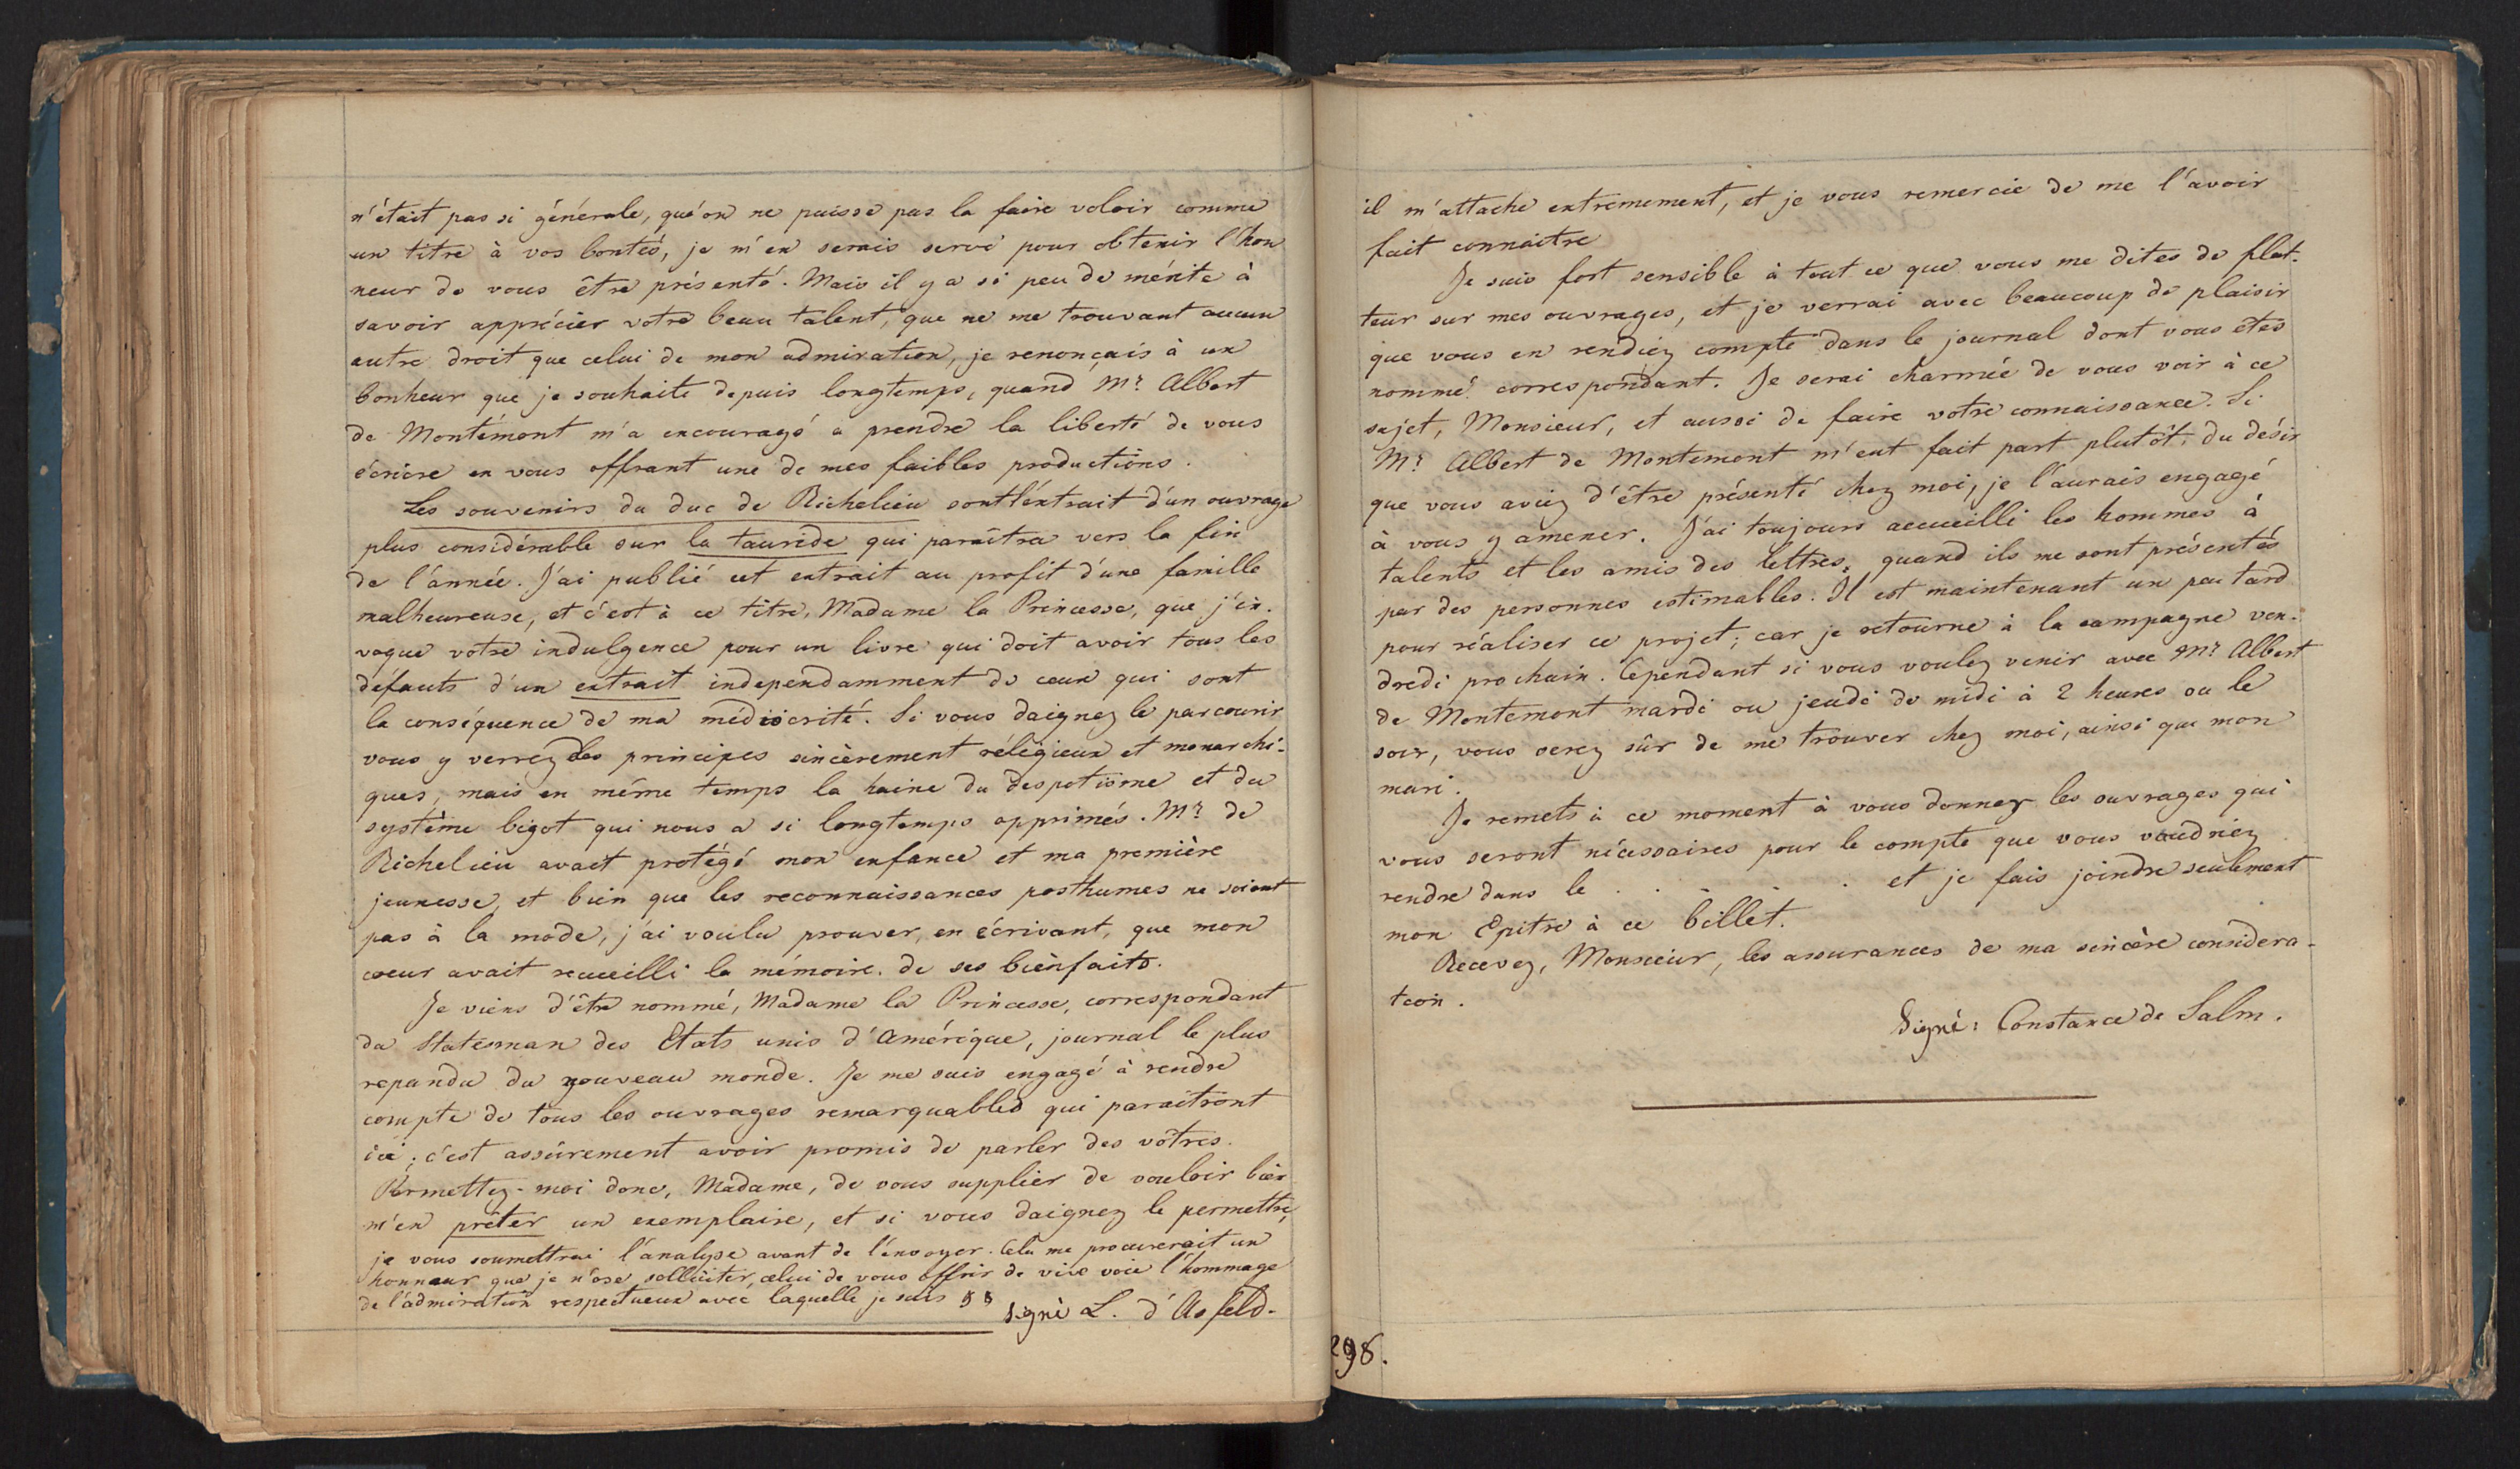 n'était pas si générale, qu'on ne puisse pas la faire valoir comme
un titre à vos bontés, je m'en serais servi pour obtenir l'hon
neur de vous être présenté. Mais il y a si peu de mérite à
savoir apprécier votre beau talent, que ne me trouvant aucun
autre droit que celui de mon admiration, je renonçais à un
bonheur que je souhaite depuis longtemps, quand Mr. Albert
de Montémont m'a encouragé a prendre la liberté de vous
écrire en vous offrant une de mes faibles productions.
Les souvenirs du duc de Richelieu sont l'extrait d'un ouvrage
plus considérable sur la tauride qui paraîtra vers la fin
de l'année. J'ai publié cet extrait au profit d'une famille
malheureuse, et c'est à ce titre, Madame la Princesse, que j'in.
voque votre indulgence pour un livre qui doit avoir tous les
défauts d'un extrait independamment de ceux qui sont
la conséquence de ma médiocrité. Si vous daignez le parcourir
vous y verrez des principes sincèrement réligieux et monarchi-
ques, mais en même temps la haine du despotisme et du
système bigot qui nous a si longtemps opprimés. Mr. de
Richelieu avait protégé mon enfance et ma première
jeunesse, et bien que les reconnaissances posthumes ne soient
pas à la mode, j'ai voulu prouver, en écrivant, que mon
coeur avait recueilli la mémoire de ses bienfaits.
Je viens d'être nommé, Madame la Princesse, correspondant
du Statesman des Etats unis d'Amérique, journal le plus
repandu du nouveau monde. Je me suis engagé à rendre
compte de tous les ouvrages remarquables qui paraitront
ici; c'est assûrement avoir promis de parler des vôtres.
Permettez-moi donc, Madame, de vous supplier de vouloir bien
m'en prêter un exemplaire, et si vous daignez le permettre,
je vous soumettrai l'analyse avant de l'envoyer. Cela me procurerait un
honneur que je n'ose solliciter, celui de vous offrir de vive voix l'hommage
de l'admiration respectueux avec laquelle je suis
signé L. d'Asfeld.
il m'attache extremement, et je vous remercie de me l'avoir
fait connaitre
Je suis fort sensible à tout ce que vous me dites de flat-
teur sur mes ouvrages, et je verrai avec beaucoup de plaisir
que vous en rendiez compte dans le journal dont vous êtes
nommé correspondant. Je serai charmée de vous voir à ce
sujet, Monsieur, et aussi de faire votre connaissance. Si
Mr. Albert de Montemont m'eut fait part plutôt, du désir
que vous aviez d'être présenté chez moi, je l'aurais engagé
à vous y amener. J'ai toujours accueilli les hommes à
talents et les amis des lettres, quand ils me sont présentés
par des personnes estimables. Il est maintenant un peu tard
pour réaliser ce projet; car je retourne à la campagne ven-
dredi prochain. Cependant si vous voulez venir avec Mr. Albert
de Montemont mardi ou jeudi de midi à 2 heures ou le
soir, vous serez sûr de me trouver chez moi, ainsi que mon
mari.
Je remets à ce moment à vous donner les ouvrages qui
vous seront nécessaires pour le compte que vous voudriez
rendre dans le . . . . et je fais joindre seulement
mon Epitre à ce billet.
Recevez, Monsieur, les assurances de ma sincère considera-
tion.
Signé: Constance de Salm.
298.